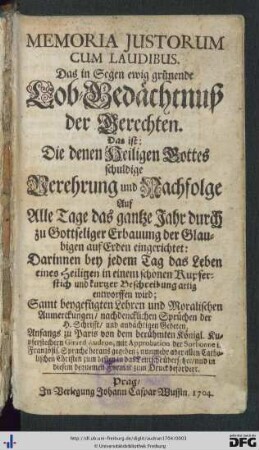 MEMORIA JUSTORUM
CUM LAUDIBUS.
Das in Segen ewig grünende
Lob-Gedächtnuß
der Gerechten.
Das ist:
Die denen Heiligen Gottes
schuldige
Verehrung und Nachfolge
Auf
Alle Tage das gantze Jahr durch
zu Gottseliger Erbauung der Glau-
bigen auf Erden eingerichtet:
Darinnen bey jedem Tag das Leben
eines Heiligen in einem schönen Kupfer-
stich und kurtzer Beschreibung artig
entworffen wird;
Samt beygefügten Lehren und Moralischen
Anmerckungen/ nachdencklichen Sprüchen der
H. Schrifft/ und andächtigen Gebeten,
Anfangs zu Paris von dem berühmten Königl. Ku-
pferstechern Girard Audran, mit Approbation der Sorbonne i.
Frantzös. Sprache heraus gegeben; nunmehr aber allen Catho-
lischen Christen zum besten und in
diesem bequemen Format zum Druck befördert.
Prag/
In Verlegung Johann Caspar Wussin. 1704.
http://dl.ub.uni-freiburg.de/diglit/audran1704/0003
© Universitätsbibliothek Freiburg